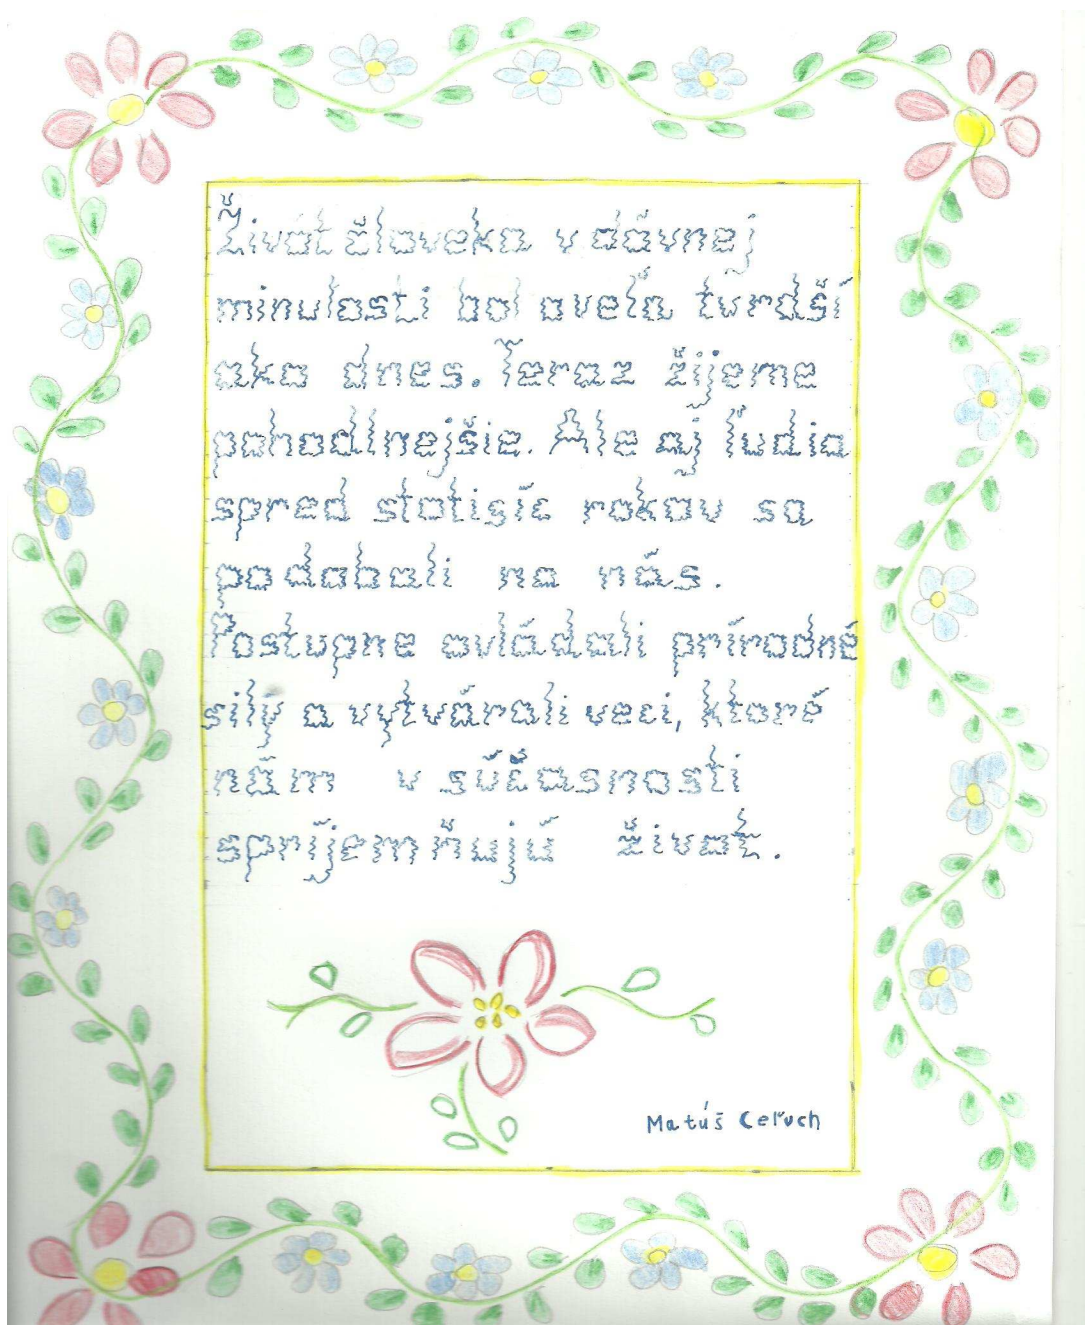 Život človeka v dávnej
minulosti bol oveľa tvrdší
ako dnes. Teraz žijeme
pohodlnejšie. Ale aj ľudia
spred stotisíc rokov sa
podobali na nás.
Postupne ovládali prírodné
silý a vytvárali veci, ktoré
nám v súčasnosti
spríjemňujú život.
Matúš Ceľuch